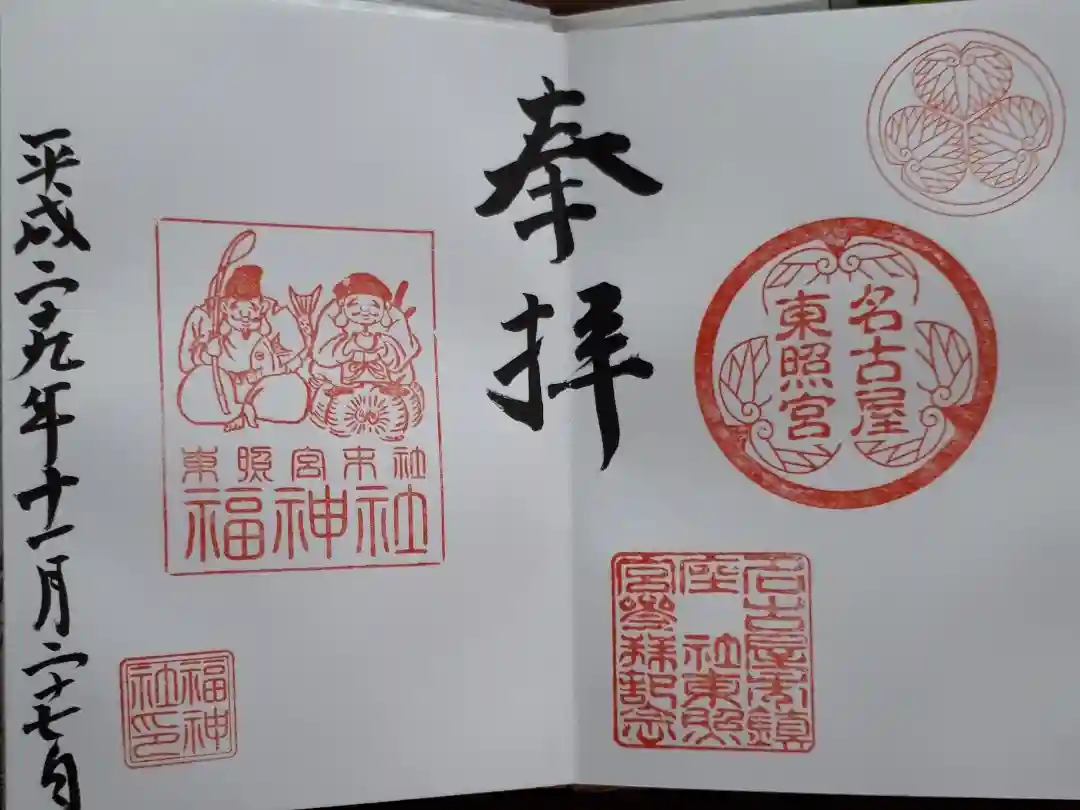 名古屋
東照宮
名古屋市鎮
座 社東照
宮參拜記念
奉拝
東照宮末社
福神社
福神
社印
平成二十九年十一月二十七日